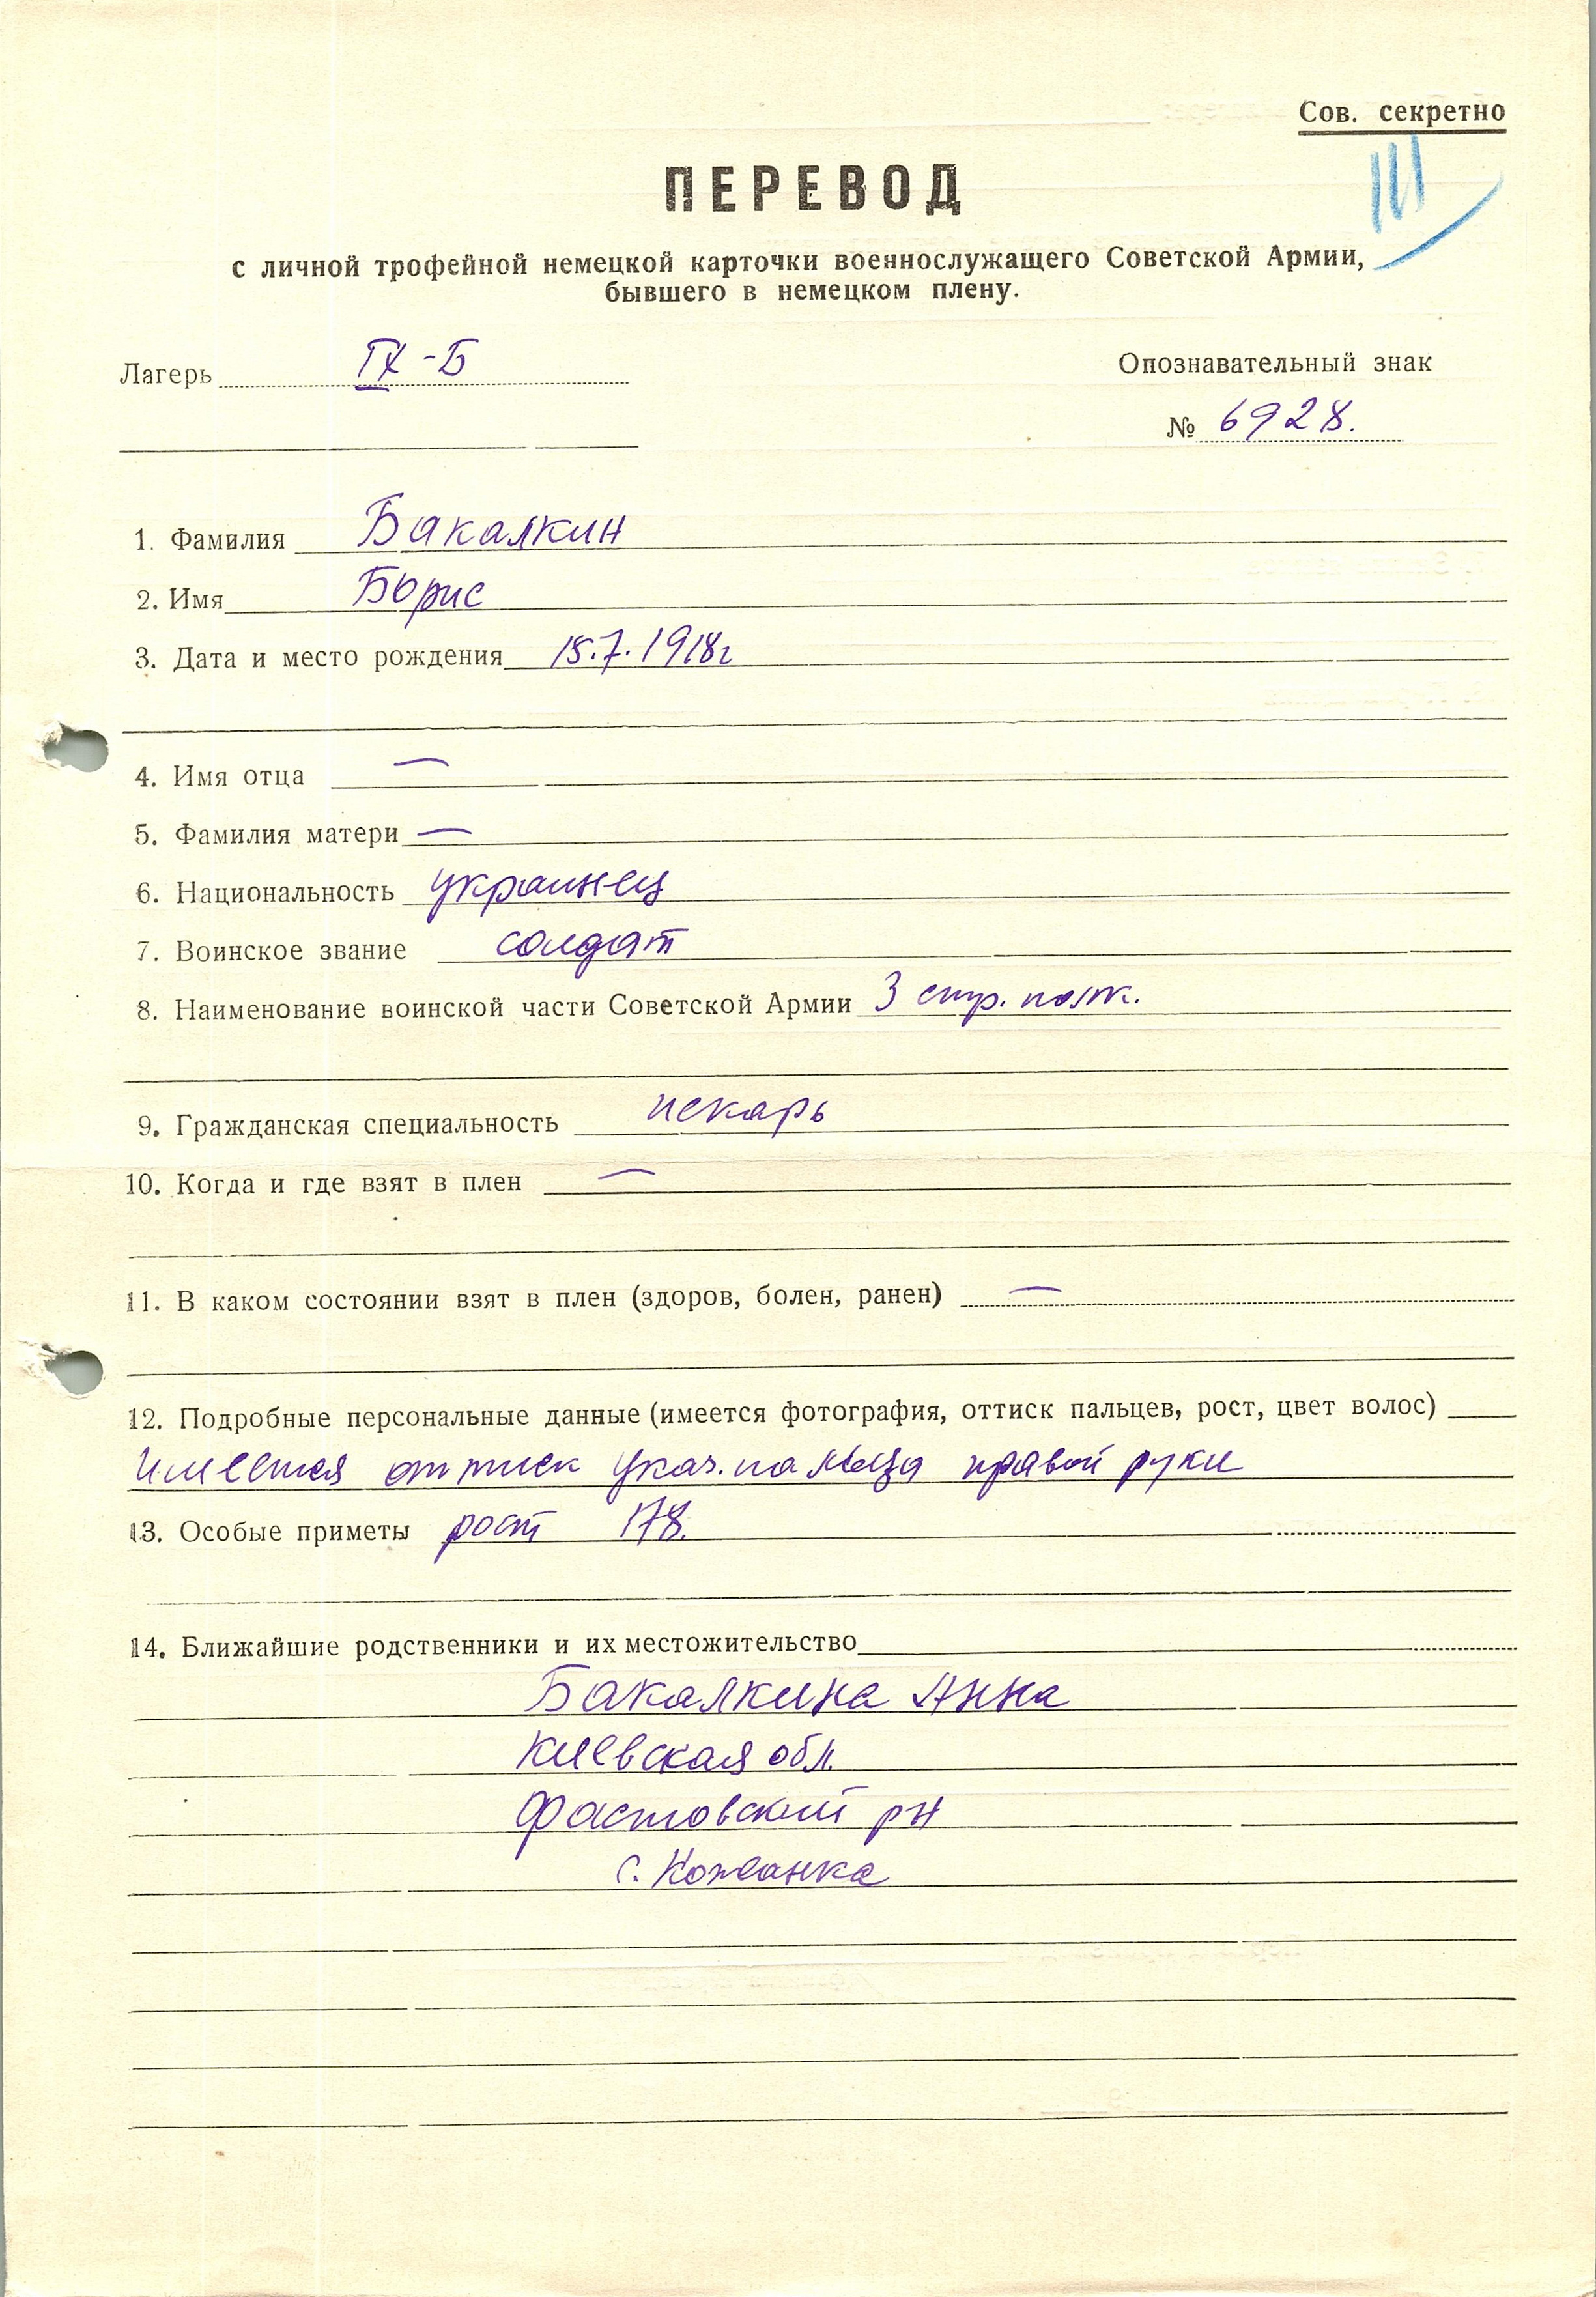 Сов. секретно
III
ПЕРЕВОД
с личной трофейной немецкой карточки военнослужащего Советской Армии,
бывшего в немецком плену.
Лагерь IX-Б
Опознавательный знак
№ 6928.
1. Фамилия Бакалкин
2. Имя Борис
3. Дата и место рождения 18.7.1918г
4. Имя отца —
5. Фамилия матери —
6. Национальность украинец
7. Воинское звание солдат
8. Наименование воинской части Советской Армии 3 стр. полк.
9. Гражданская специальность пекарь
10. Когда и где взят в плен —
11. В каком состоянии взят в плен (здоров, болен, ранен) —
12. Подробные персональные данные (имеется фотография, оттиск пальцев, рост, цвет волос)
имеется оттиск указ. пальца правой руки
13. Особые приметы рост 178.
14. Ближайшие родственники и их местожительство
Бакалкина Анна
Киевская обл.
Фастовский рн
с. Кожанка